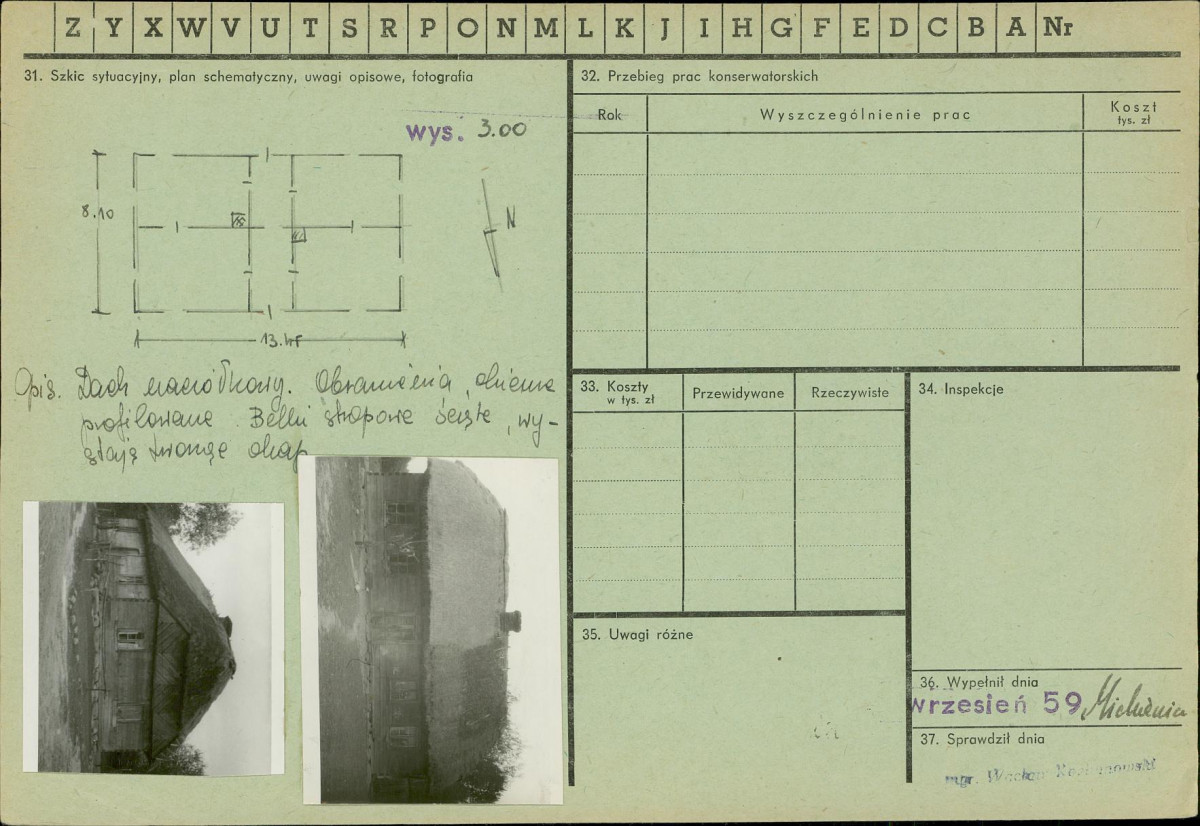 Z Y X W V U T S R P O N M L K J I H G F E D C B A Nr
31. Szkic sytuacyjny, plan schematyczny, uwagi opisowe, fotografia
wys. 3.00
8.10
N
Opis. Dach naczółkowy. Obramienia okienne
profilowane. Belki stropowe ścięte, wy-
stają tworząc okap
32. Przebieg prac konserwatorskich
Rok
Wyszczególnienie prac
Koszt
tys. zł
33. Koszty
w tys. zł
Przewidywane
Rzeczywiste
34. Inspekcje
35. Uwagi różne
36. Wypełnił dnia
wrzesień 59
37. Sprawdził dnia
mgr. Wacław